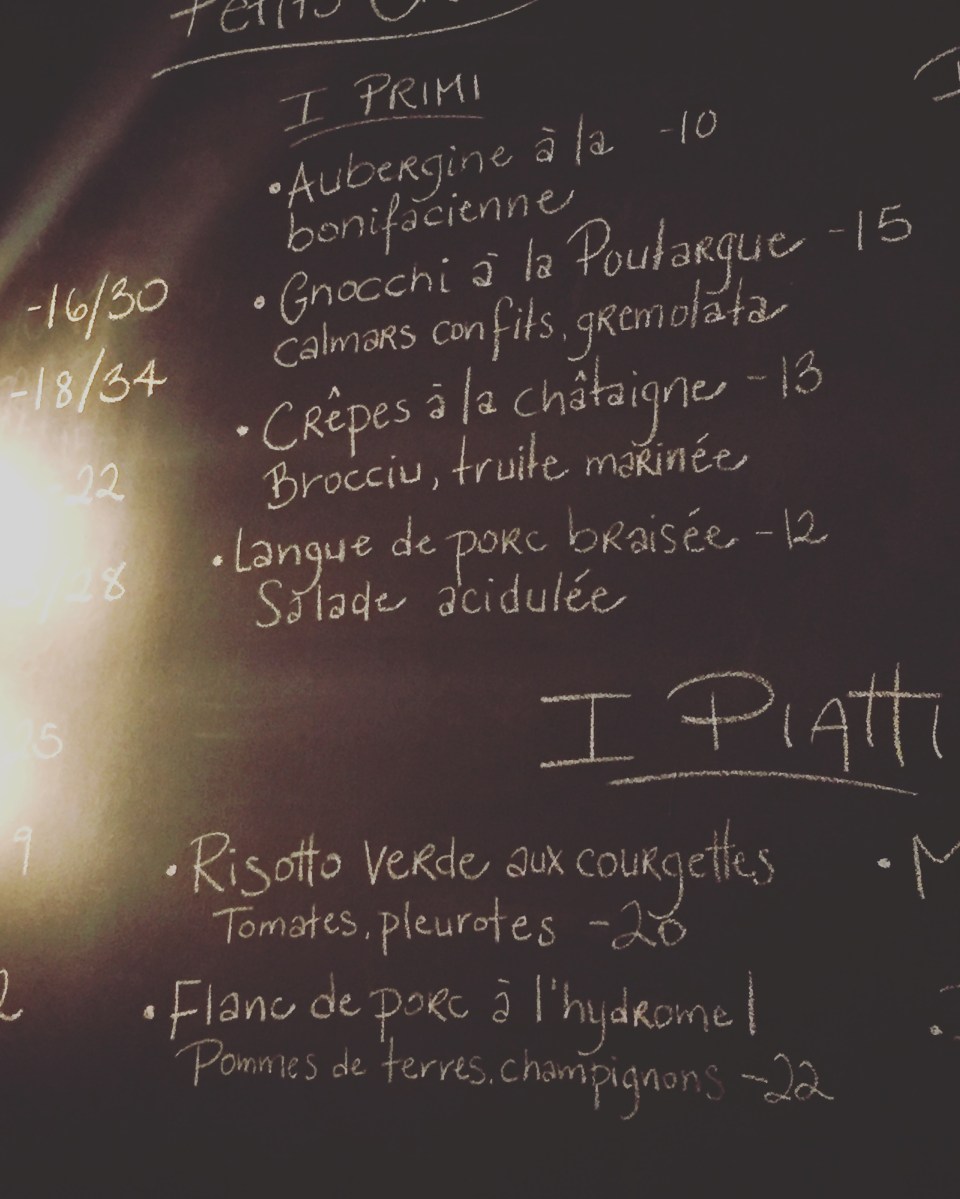 I PRIMI
• Aubergine à la -10
bonifacienne
• Gnocchi à la Poutargue -15
calmars confits, gremolata
• Crêpes à la châtaigne -13
Brocciu, truite marinée
• Langue de porc braisée -12
Salade acidulée
-16/30
-18/34
22
/28
5
9
I Piatti
• Risotto verde aux courgettes
Tomates, pleurotes -20
• Flanc de porc à l'hydromel
Pommes de terres, champignons -22